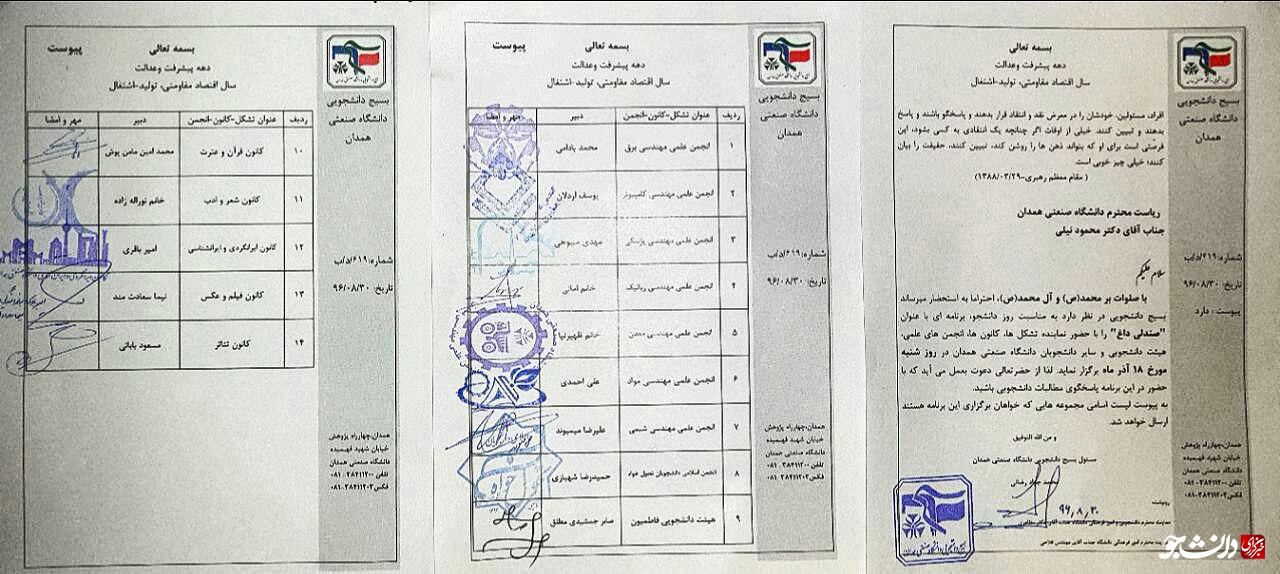 بسمه تعالی
دهه پیشرفت وعدالت
سال اقتصاد مقاومتی، تولید-اشتغال
بسیج دانشجویی
دانشگاه صنعتی
همدان
آقرای مسئولین، خودشان را در معرض نقد و انتقاد قرار بدهند و پاسخگو باشند و پاسخ
بدهند و تبیین کنند. خیلی از اوقات اگر چنانچه یک انتقادی به کسی بشود، این
فرصتی است برای او که بتواند ذهن ها را روشن کند، تبیین کنند، حقیقت را بیان
کنند؛ خیلی چیز خوبی است.
( مقام معظم رهبری-۱۳۸۸/۰۳/۲۹)
ریاست محترم دانشگاه صنعتی همدان
جناب آقای دکتر محمود نیلی
شماره:۶۱۹/د/ب
تاریخ: ۹۶/۰۸/۳۰
پیوست : دارد
سلام علیکم
با صلوات بر محمد(ص) و آل محمد(ص)، احتراما به استحضار میرساند
بسیج دانشجویی در نظر دارد به مناسبت روز دانشجو، برنامه ای با عنوان
"صندلی داغ" را با حضور نماینده تشکل ها، کانون ها، انجمن های علمی،
هیئت دانشجویی و سایر دانشجویان دانشگاه صنعتی همدان در روز شنبه
مورخ ۱۸ آذر ماه برگزار نماید. لذا از حضرتعالی دعوت بعمل می آید که با
حضور در این برنامه پاسخگوی مطالبات دانشجویی باشید.
به پیوست لیست اسامی مجموعه هایی که خواهان برگزاری این برنامه هستند
ارسال خواهد شد.
و من الله التوفیق
مسئول بسیج دانشجویی دانشگاه صنعتی همدان
۹۶,۸,۳۰
رونوشت
همدان،چهارراه پژوهش
خیابان شهید فهمیده
دانشگاه صنعتی همدان
تلفن ۳۸۴۱۱۲۰۰-۰۸۱
فکس۳۸۴۱۱۲۰۲-۰۸۱
خبرگزاری دانشجو
بسمه تعالی
پیوست
دهه پیشرفت وعدالت
سال اقتصاد مقاومتی، تولید-اشتغال
بسیج دانشجویی
دانشگاه صنعتی
همدان
ردیف عنوان تشکل-کانون-انجمن دبیر مهر و امضا
۱ انجمن علمی مهندسی برق محمد بادامی
۲ انجمن علمی مهندسی کامپیوتر یوسف اردلان
۳ انجمن علمی مهندسی پزشکی مهدی صبوحی
۴ انجمن علمی مهندسی رباتیک خانم امانی
۵ انجمن علمی مهندسی معدن خانم ظهیرنیا
۶ انجمن علمی مهندسی مواد علی احمدی
۷ انجمن علمی مهندسی شیمی علیرضا میمیوند
۸ انجمن اسلامی دانشجویان تحول خواه حمیدرضا شهبازی
۹ هیئت دانشجویی فاطمیون صابر جمشیدی مطلق
شماره:۶۱۹/د/ب
تاریخ: ۹۶/۰۸/۳۰
همدان،چهارراه پژوهش
خیابان شهید فهمیده
دانشگاه صنعتی همدان
تلفن ۳۸۴۱۱۲۰۰-۰۸۱
فکس۳۸۴۱۱۲۰۲-۰۸۱
بسمه تعالی
پیوست
دهه پیشرفت وعدالت
سال اقتصاد مقاومتی، تولید-اشتغال
بسیج دانشجویی
دانشگاه صنعتی
همدان
ردیف عنوان تشکل-کانون-انجمن دبیر مهر و امضا
۱۰ کانون قرآن و عترت محمد امین مامن پوش
۱۱ کانون شعر و ادب خانم نوراله زاده
۱۲ کانون ایرانگردی و ایرانشناسی امیر باقری
۱۳ کانون فیلم و عکس نیما سعادت مند
۱۴ کانون تئاتر مسعود بابائی
شماره:۶۱۹/د/ب
تاریخ: ۹۶/۰۸/۳۰
همدان،چهارراه پژوهش
خیابان شهید فهمیده
دانشگاه صنعتی همدان
تلفن ۳۸۴۱۱۲۰۰-۰۸۱
فکس۳۸۴۱۱۲۰۲-۰۸۱